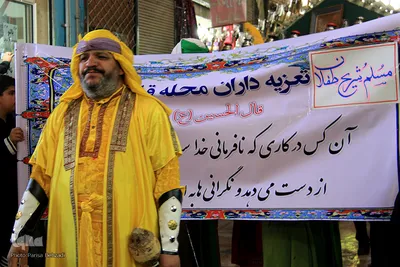 تعزیه داران محله
مسلم شریح طفلان
قال الحسین (ع)
آن کس در کاری که نافرمانی خدا
از دست می دهد و نگرانی ها به
Photo: Parisa Dehzadi